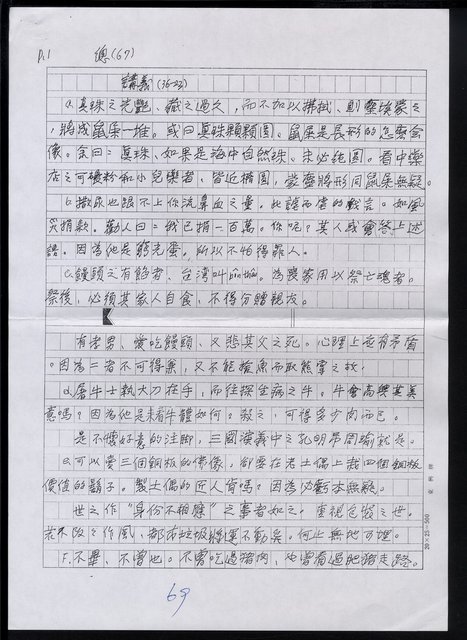 P.1 總(67)
講義(36-23)
a.真珠之光艷、藏之過久,而不加以擦拭、則塵埃蒙之
,將成鼠屎一堆。或曰真珠顆顆圓。鼠屎是長形的怎麼會
像。余曰:真珠、如果是海中自然珠、未必純圓。看中藥
店之可磨粉和小兒藥者、皆近橢圓,蒙塵時形同鼠屎無疑。
b.撒尿也跟不上你流鼻血之量,此諺西信的戲言。如風
災捐款。勸人曰:我已捐一百萬。你呢?其人或會答上述
語。因為他是窮光蛋,所以不怕得罪人。
c.饅頭之有餡者、台湾叫。為喪家用以祭亡魂者。
祭後,必須其家人自食,不得分贈親友。
有孝男、愛吃饅頭、又悲其父之死。心理上並有矛盾
。因為二者不可得兼,又不能捨魚而取熊掌之故!
d.屠牛士執大刀在手,而往探生病之牛。牛會高興其美
意嗎?因為他是來看牛體如何。殺之,可得多少肉而已。
是不懷好意的注腳,三國演義中之孔明弔周瑜就是。
e.可以賣三個銅板的佛像,卻要在老土偶上栽四個銅板
價值的鬍子。製土偶的匠人肯嗎?因為必虧本無疑。
世之作“身份不相應”之事者如之。重視包裝之世。
若不改之作風、都市垃圾將運不勤矣。何止無地可埋。
F.不畢、不曾也。不曾吃過豬肉,也曾看過肥豬走路。
20×25=500
69